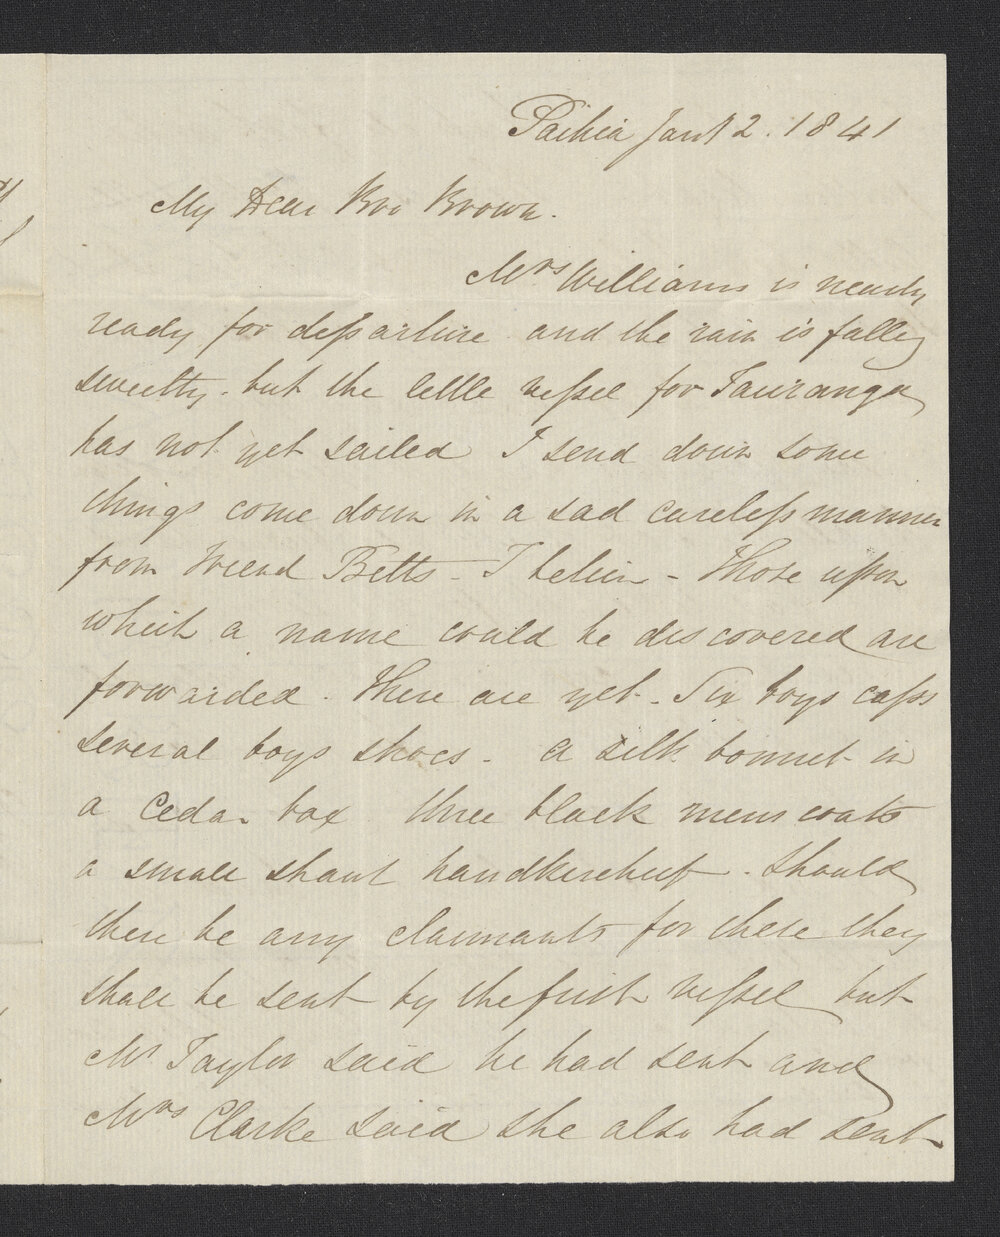 Paihia Jany 2. 1841
My Dear Bro Brown.
Mrs Williams is nearly
ready for departure and the rain is falling
sweetly. but the little vessel for Tauranga
has not yet sailed I send down some
things come down in a sad careless manner
from Friend Betts - I believe - Those upon
which a name could be discovered are
forwarded. There are yet. Six boys caps
several boys shoes. a silk bonnet in
a Cedar box three black mens coats
a small shawl handkerchief. Should
there be any claimants for these they
shall be sent by the first vessel but
Mr Taylor said he had sent and
Mrs Clarke said she also had sent